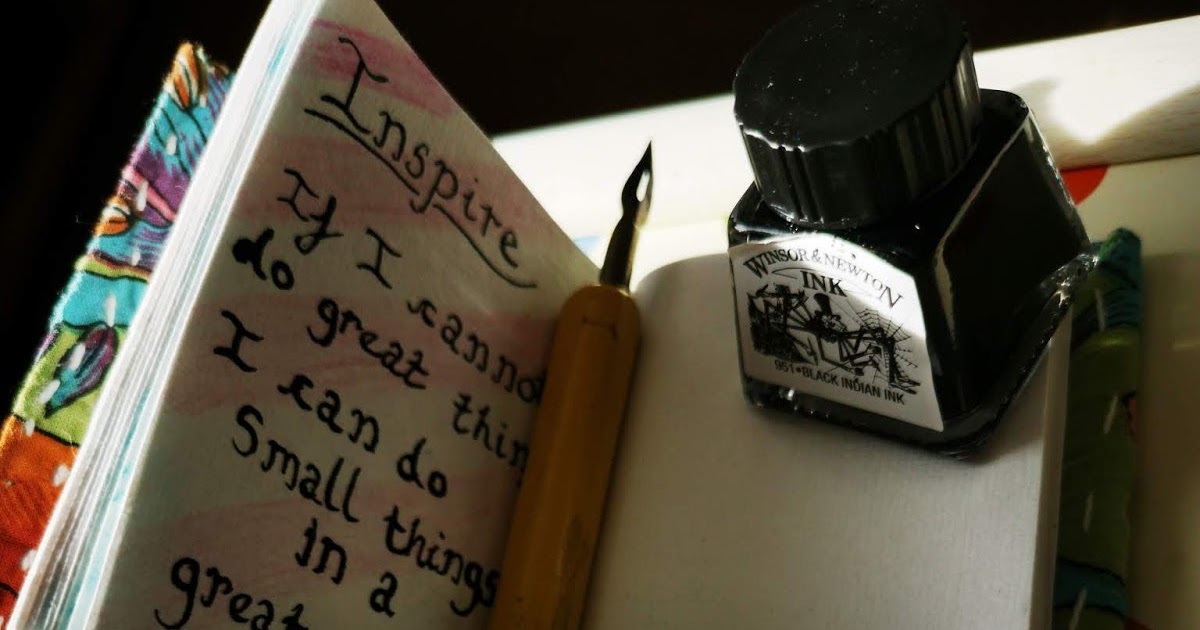 Inspire
If I canno
do great thin
I can do
Small things
in a
great
WINSOR & NEWTON
INK
951•BLACK INDIAN INK